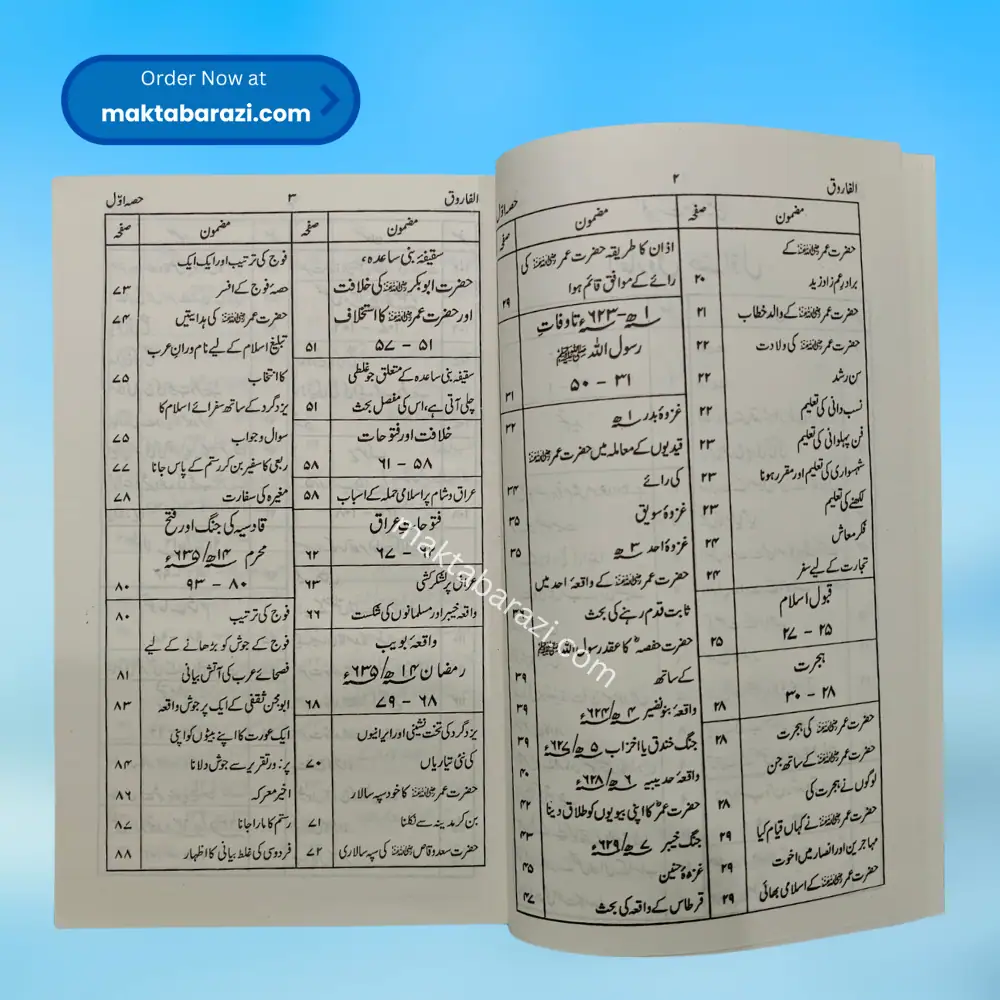 Order Now at
maktabarazi.com
الفاروق ۲ حصہ اوّل
مضمون صفحہ
حضرت عمرؓ کے
برادرِ عم زاد زید ۲۰
حضرت عمرؓ کے والد خطاب ۲۱
حضرت عمرؓ کی ولادت ۲۲
سن رشد ۲۲
نسب دانی کی تعلیم ۲۲
فن پہلوانی کی تعلیم ۲۳
شہسواری کی تعلیم اور مقرر ہونا ۲۳
لکھنے کی تعلیم ۲۳
فکر معاش ۲۴
تجارت کے لیے سفر ۲۴
قبول اسلام
۲۵ – ۲۷ ۲۵
ہجرت
۲۸ – ۳۰ ۲۸
حضرت عمرؓ کی ہجرت ۲۸
حضرت عمرؓ کے ساتھ جن
لوگوں نے ہجرت کی ۲۸
حضرت عمرؓ نے کہاں قیام کیا ۲۹
مہاجرین اور انصار میں اخوت ۲۹
حضرت عمرؓ کے اسلامی بھائی ۲۹
مضمون صفحہ
اذان کا طریقہ حضرت عمرؓ کی
رائے کے موافق قائم ہوا ۲۹
۱ھ-۶۲۳ء تا وفاتِ
رسول اللہ ﷺ
۳۱ – ۵۰ ۳۱
غزوۂ بدر ۱ھ ۳۲
قیدیوں کے معاملہ میں حضرت عمرؓ
کی رائے ۳۴
غزوۂ سویق ۳۵
غزوۂ احد ۳ھ ۳۵
حضرت عمرؓ کے واقعۂ احد میں
ثابت قدم رہنے کی بحث
حضرت حفصہؓ کا عقد رسول اللہ ﷺ
کے ساتھ ۳۹
واقعۂ بنو نضیر ۴ھ/۶۲۴ء ۳۹
جنگ خندق یا احزاب ۵ھ/۶۲۷ء ۳۹
واقعۂ حدیبیہ ۶ھ/۶۲۸ء ۴۰
حضرت عمرؓ کا اپنی بیویوں کو طلاق دینا ۴۲
جنگ خیبر ۷ھ/۶۲۹ء ۴۳
غزوۂ حنین ۴۵
قرطاس کے واقعہ کی بحث ۴۷
الفاروق ۳ حصہ اوّل
مضمون صفحہ
سقیفۂ بنی ساعدہ،
حضرت ابوبکرؓ کی خلافت
اور حضرت عمرؓ کا استخلاف
۵۱ – ۵۷ ۵۱
سقیفۂ بنی ساعدہ کے متعلق جو غلطی
چلی آتی ہے، اس کی مفصل بحث ۵۱
خلافت اور فتوحات
۵۸ – ۶۱ ۵۸
عراق و شام پر اسلامی حملہ کے اسباب ۵۸
فتوحاتِ عراق
۶۲ – ۶۷ ۶۲
عراق پر لشکر کشی ۶۳
واقعۂ خیبر اور مسلمانوں کی شکست ۶۶
واقعۂ بویب
رمضان ۱۴ھ/۶۳۵ء
۶۸ – ۷۹ ۶۸
یزدگرد کی تخت نشینی اور ایرانیوں
کی نئی تیاریاں ۷۰
حضرت عمرؓ کا خود سپہ سالار
بن کر مدینہ سے نکلنا ۷۱
حضرت سعد وقاصؓ کی سپہ سالاری ۷۲
مضمون صفحہ
فوج کی ترتیب اور ایک ایک
حصۂ فوج کے افسر ۷۳
حضرت عمرؓ کی ہدایتیں ۷۴
تبلیغِ اسلام کے لیے نام ورانِ عرب
کا انتخاب ۷۵
یزدگرد کے ساتھ سفرائے اسلام کا
سوال و جواب ۷۵
ربعی کا سفیر بن کر رستم کے پاس جانا ۷۷
مغیرہ کی سفارت ۷۸
قادسیہ کی جنگ اور فتح
محرم ۱۴ھ/۶۳۵ء
۸۰ – ۹۳ ۸۰
فوج کی ترتیب ۸۰
فوج کے جوش کو بڑھانے کے لیے
فصحائے عرب کی آتش بیانی ۸۱
ابو محجن ثقفی کے ایک پر جوش واقعہ ۸۳
ایک عورت کا اپنے بیٹوں کو اپنی
پر زور تقریر سے جوش دلانا ۸۴
اخیر معرکہ ۸۶
رستم کا مارا جانا ۸۷
فردوسی کی غلط بیانی کا اظہار ۸۸
maktabarazi.com